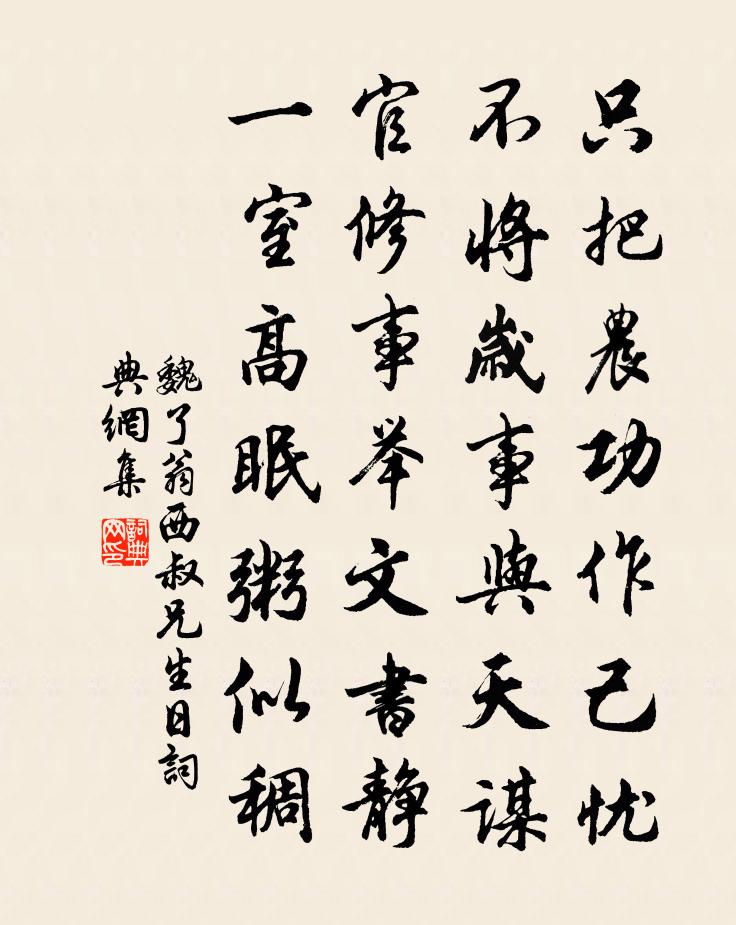 只把農功作己忧
不將歲事與天謀
官修事举文書靜
一室高眠粥似稠
魏了翁西叔兄生日詞
典網集
詞典網印